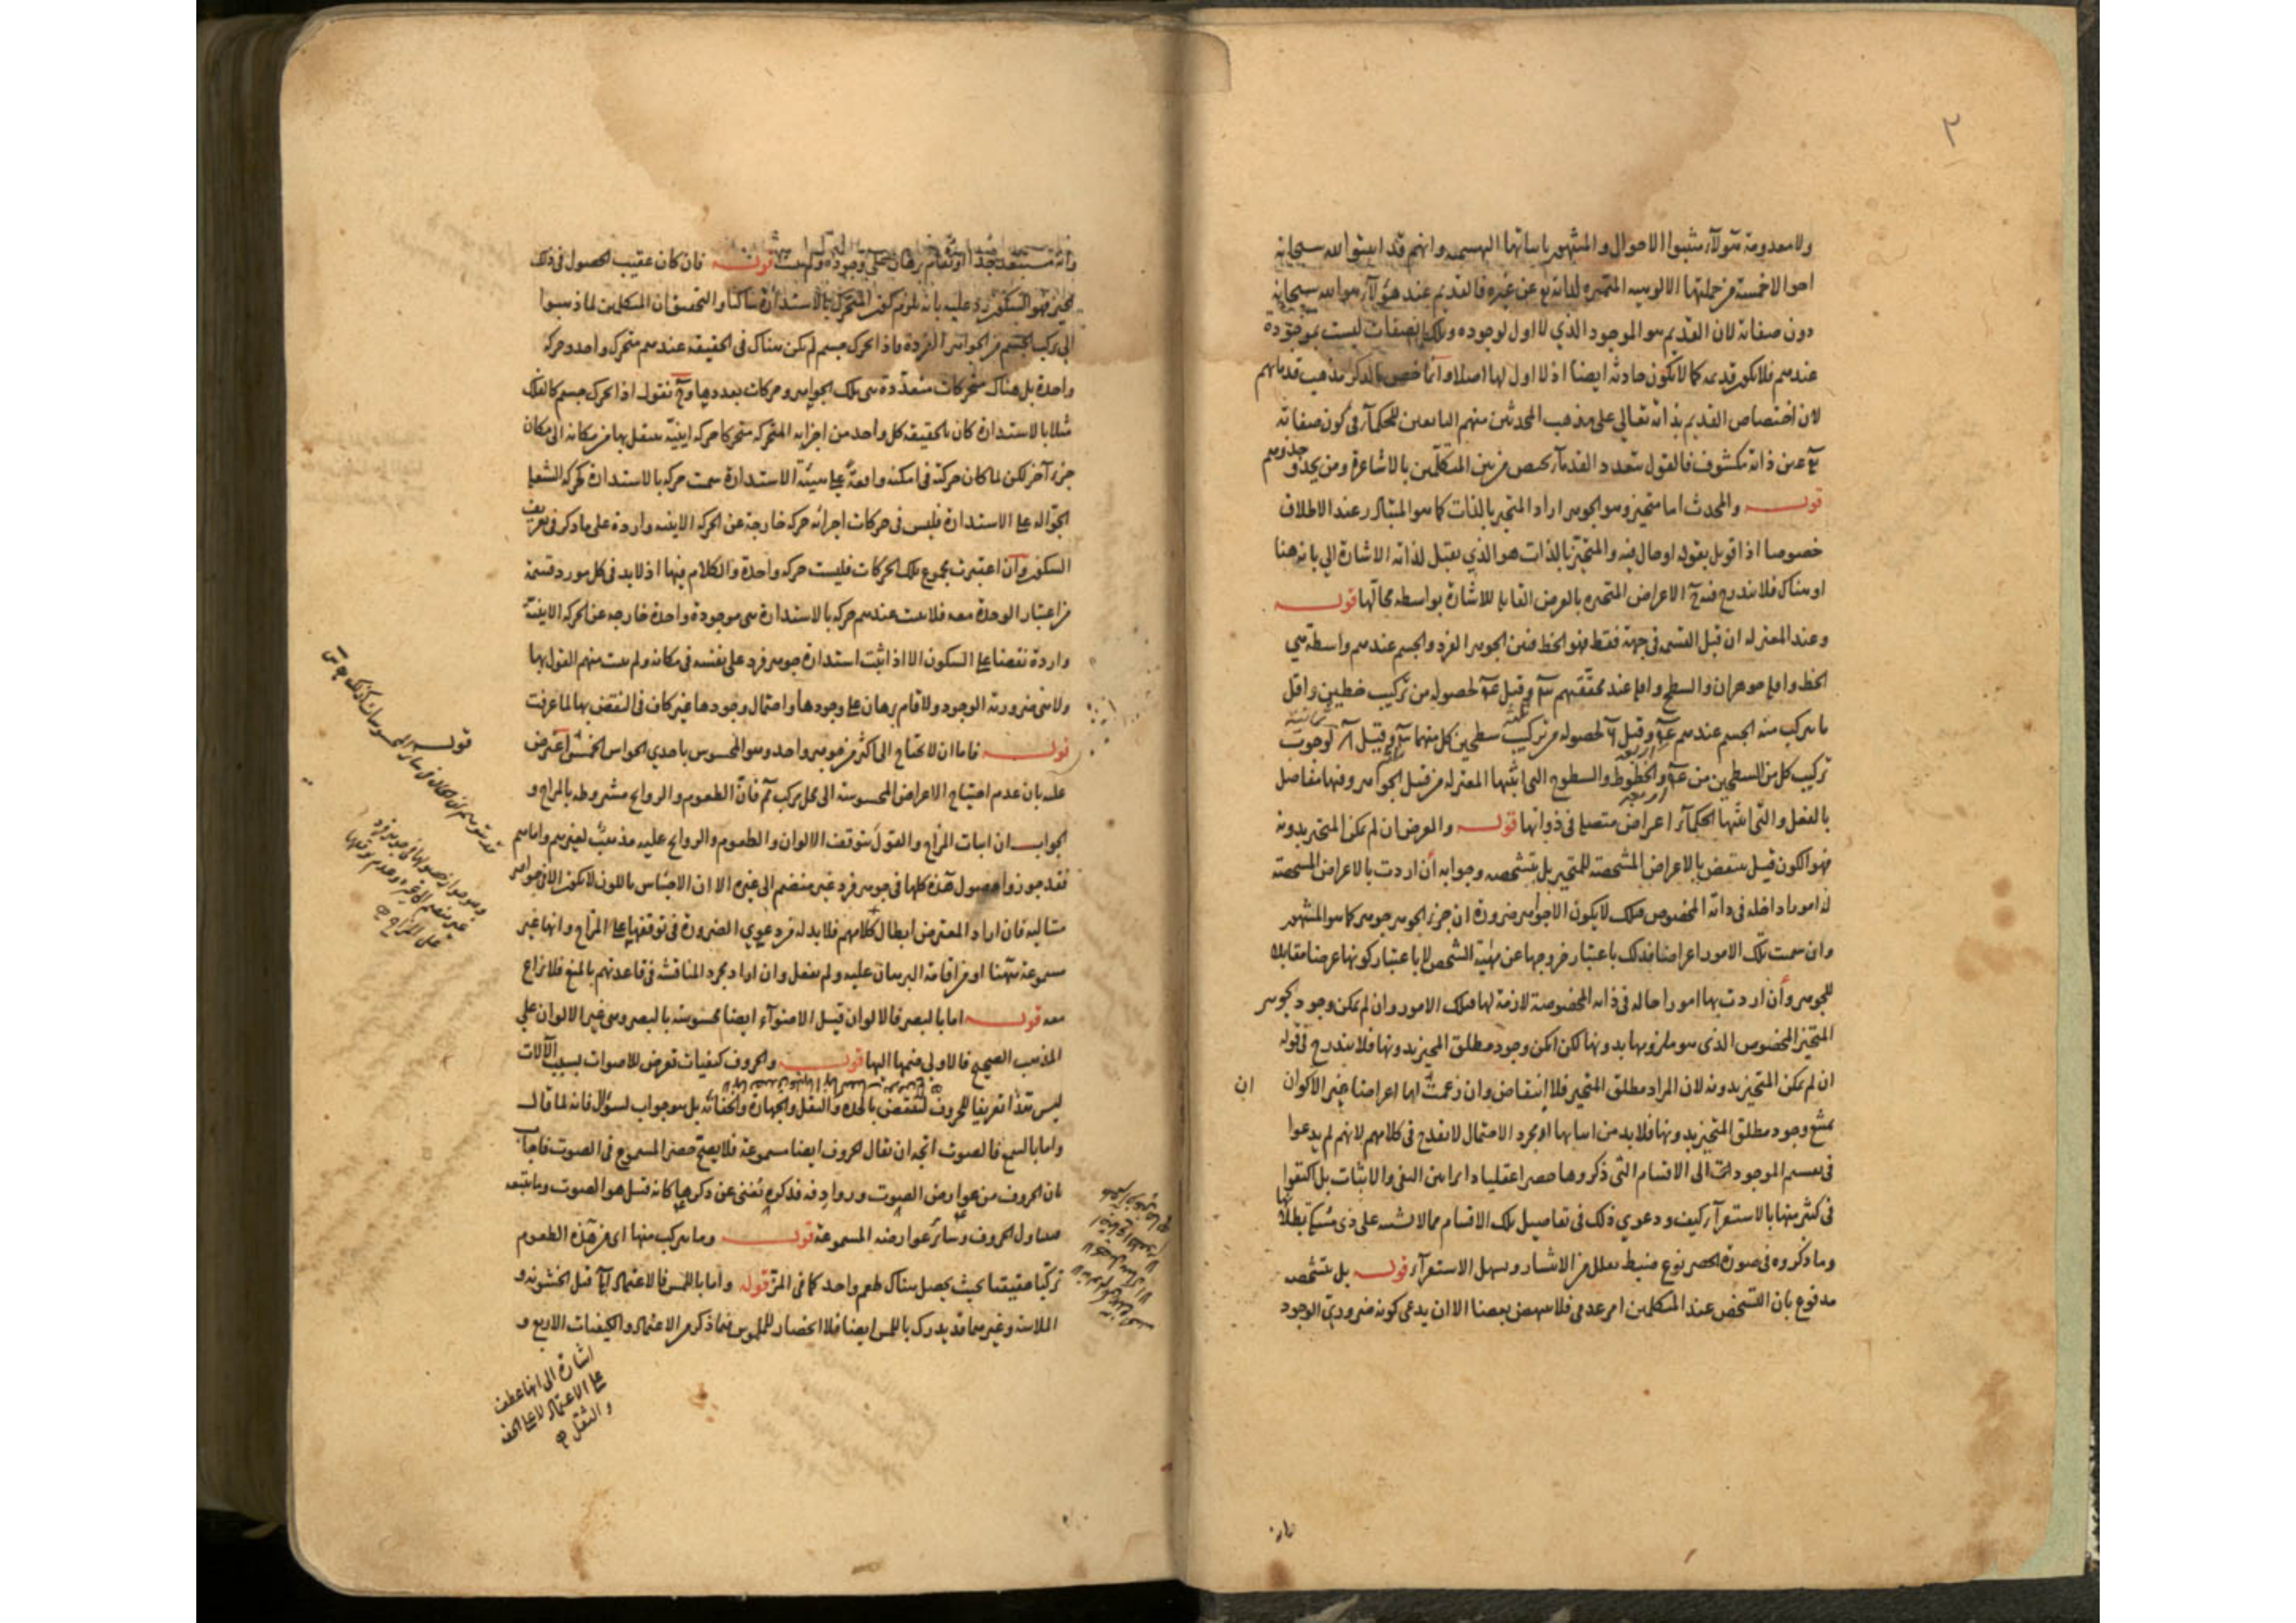 ٢
ولا معدومة هؤلاء مثبتوا الاحوال والمشهور باثباتها البهشمية وانهم قد اثبتوا لله سبحانه
احوالا خمسة من جملتها الالوهية المتميزة لذاته بها عن غيره فالقديم عند هؤلاء هو الله سبحانه
دون صفاته لان القديم هو الموجود الذي لا اول لوجوده وتلك الصفات ليست بموجودة
عندهم فلا تكون قديمة كما لا تكون حادثة ايضا اذ لا اول لها اصلا وانما خص بالذكر مذهب قدمائهم
لان اختصاص القديم بذاته تعالى على مذهب المحدثين منهم التابعين للحكماء في كون صفاته
تع عين ذاته مكشوف فالقول بتعدد القدماء يختص من بين المتكلمين بالاشاعرة ومن يحذو حذوهم
قوله والمحدث اما متحيز وهو الجوهر اراد المتحيز بالذات كما هو المتبادر عند الاطلاق
خصوصا اذا قوبل بقوله او حال فيه والمتحيز بالذات هو الذي يقبل لذاته الاشارة اليه بانه هنا
او هناك فلا يندرج فيه الاعراض المتحيزة بالعرض القابلة للاشارة بواسطة محالها قوله
وعند المعتزلة ان قبل القسمة في جهة فقط فهو الخط فبين الجوهر الفرد والجسم عندهم واسطة هي
الخط واقله جوهران والسطح واقله عند محققهم وقيل لحصوله من تركيب خطين واقل
ما يتركب منه الجسم عندهم وقيل لحصوله من تركيب سطحين كل منهما وقيل لوجوب
تركيب كل من السطحين من والخطوط والسطوح التي اثبتها المعتزلة من قبيل الجواهر وفيها مفاصل
بالفعل والتي اثبتها الحكماء اعراض متصلة في ذواتها قوله والعرض ان لم يكن المتحيز بدونه
فهو الكون قيل ينتقض بالاعراض المشخصة للمتحيز بل بتشخصه وجوابه ان اردت بالاعراض المشخصة
له امورا داخلة في ذاته المخصوص فتلك لا يكون الا جواهر ضرورة ان جزء الجوهر جوهر كما هو المشهور
وان سميت تلك الامور اعراضا فذلك باعتبار خروجها عن مهية الشخص لا باعتبار كونها عرضا مقابلا
للجوهر وان اردت بها امورا حالة في ذاته المخصوصة لازمة لها فتلك الامور وان لم يكن وجود الجوهر
المتحيز المخصوص الذي هو ملزومها بدونها لكن امكن وجود مطلق المتحيز بدونها فلا يندرج في قوله
ان لم يكن المتحيز بدونه لان المراد مطلق المتحيز فلا انتقاض وان زعمت ان لها اعراضا غير الاكوان
يمتنع وجود مطلق المتحيز بدونها فلا بد من اثباتها اذ مجرد الاحتمال لا يقدح في كلامهم لانهم لم يدعوا
في تقسيم الموجودات الى الاقسام التي ذكروها حصرا عقليا دائرا بين النفي والاثبات بل اكتفوا
في كثير منها بالاستقراء كيف ودعوى ذلك في تفاصيل تلك الاقسام مما لا يشتبه على ذي مسكة بطلانها
وما ذكروه في صورة الحصر نوع ضبط يقلل من الانتشار ويسهل الاستقراء قوله بل بتشخصه
مدفوع بان التشخص عند المتكلمين امر عدمي فلا ينتهض نقضا الا ان يدعى كونه ضروري الوجود
وانه مستبعد جدا او يقام برهان على وجوده ولم يثبت قوله فان كان عقيب الحصول في ذلك
الحيز فهو السكون يرد عليه بانه يلزم كون المتحرك بالاستدارة ساكنا والتحقيق ان المتكلمين لما ذهبوا
الى تركب الجسم من الجواهر الفردة فاذا تحرك جسم لم يكن هناك في الحقيقة عندهم متحرك واحد وحركة
واحدة بل هناك متحركات متعددة هي تلك الجواهر وحركات بعددها وح نقول اذا تحرك جسم كالفلك
مثلا بالاستدارة كان بالحقيقة كل واحد من اجزائه المتحركة متحركا حركة اينية ينتقل بها من مكانه الى مكان
جزء آخر لكن لما كان حركته في امكنة واقعة على هيئة الاستدارة سميت حركة بالاستدارة كحركة الشعلة
الجوالة على الاستدارة فليس في حركات اجزائه حركة خارجة عن الحركة الاينية واردة على ما ذكر في تعريف
السكون وان اعتبرت مجموع تلك الحركات فليست حركة واحدة والكلام فيها اذ لا بد في كل مورد قسمة
من اعتبار الوحدة معه فلا يثبت عندهم حركة بالاستدارة هي موجودة واحدة خارجة عن الحركة الاينية
واردة نقضا على السكون الا اذا اثبت استدارة جوهر فرد على نفسه في مكانه ولم يثبت منهم القول بها
ولا هي ضرورية الوجود ولا قام برهان على وجودها واحتمال وجودها غير كاف في النقض بها لما عرفت
قوله فاما ان لا يحتاج الى اكثر من جوهر واحد وهو المحسوس باحدى الحواس الخمس اعترض
عليه بان عدم احتياج الاعراض المحسوسة الى محل مركب مم فان الطعوم والروائح مشروطة بالمزاج و
الجواب ان اثبات المزاج والقول بتوقف الالوان والطعوم والروائح عليه مذهب لغيرهم واما هم
فقد جوزوا حصول هذه كلها في جوهر فرد غير منضم الى غيره الا ان الاحساس باللون لا يكون الا في جواهر
متتالية فان اراد المعترض ابطال كلامهم فلا بد له من دعوى الضرورة في توقفها على المزاج وانها غير
مسموعة ههنا او من اقامة البرهان عليه ولم يفعل وان اراد مجرد المناقشة في قاعدتهم بالمنع فلا نزاع
معه قوله اما بالبصر فالالوان قيل الاضواء ايضا محسوسة بالبصر وهي غير الالوان على
المذهب الصحيح فالاولى ضمها اليها قوله والحروف كيفيات تعرض للاصوات بسبب الآلات
ليس هذا تعريفا للحروف لينتقض بالحدة والثقل والجهارة والخفائة بل هو جواب لسؤال فانه لما قال
واما بالسمع فالصوت اتجه ان يقال الحروف ايضا مسموعة فلا يصح حصر المسموع في الصوت فاجاب
بان الحروف من عوارض الصوت وروادفه فذكره يغني عن ذكرها كانه قيل هو الصوت وما يتبعه
فيتناول الحروف وسائر عوارضه المسموعة قوله وما يتركب منها اي من هذه الطعوم
تركبا حقيقيا بحيث يحصل هناك طعم واحد كما في المز قوله واما باللمس فالاعتماد قيل الخشونة و
الملاسة وغيرهما قد يدرك باللمس ايضا فلا انحصار للملموس فيما ذكر من الاعتماد والكيفيات الاربع و
اشارة الى انها عطف
على الاعتماد لا على الخفة
والثقل